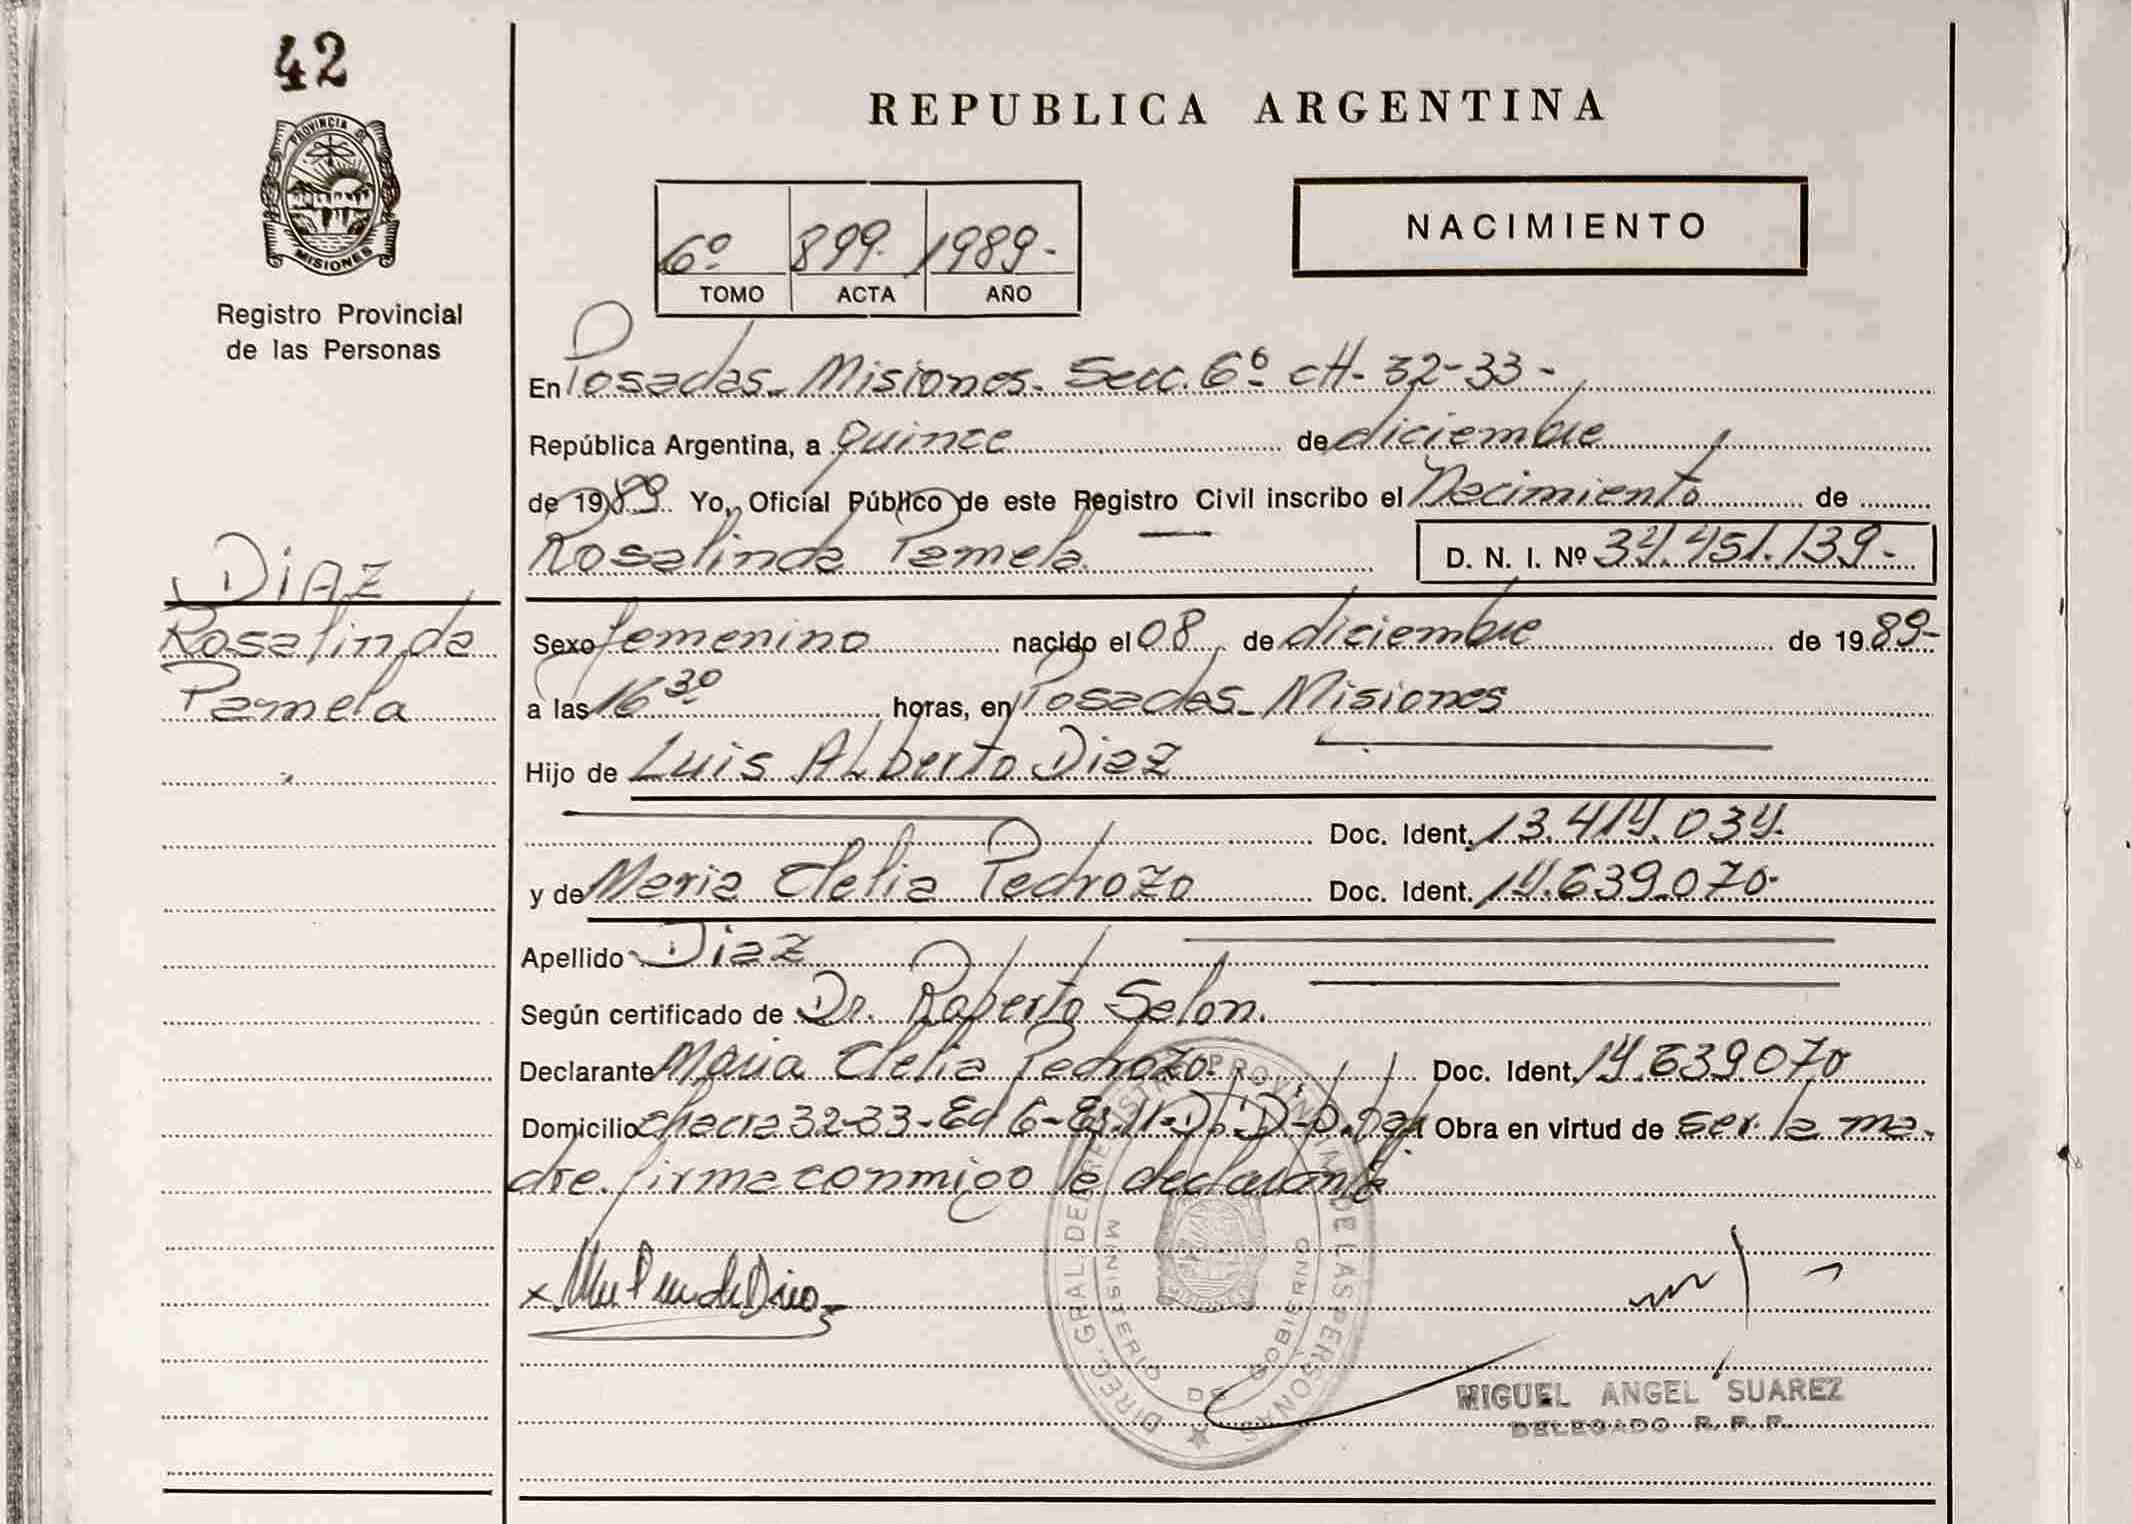 42
PROVINCIA DE
MISIONES
Registro Provincial
de las Personas
REPUBLICA ARGENTINA
NACIMIENTO
6º 899. 1989.-
TOMO ACTA AÑO
En Posadas. Misiones. Secc. 6º cH. 32-33-
República Argentina, a quince de diciembre
de 1989. Yo, Oficial Público de este Registro Civil inscribo el Nacimiento de
Rosalinda Pamela D. N. I. Nº 34.451.139.-
DIAZ
Rosalinda
Pamela
Sexo femenino nacido el 08 de diciembre de 1989-
a las 16 30 horas, en Posadas. Misiones
Hijo de Luis ALberto Diaz
Doc. Ident. 13.414.034.
y de Maria Clelia Pedrozo Doc. Ident. 14.639.070.
Apellido Diaz
Según certificado de Dr. Roberto Selon.
Declarante Maria Clelia Pedrozo. Doc. Ident. 14.639.070
Domicilio chacra 32-33-Ed 6- Obra en virtud de ser la ma-
dre. firma conmigo la declarante
DIREC. GRAL. DEL REGISTRO PROVINCIAL DE LAS PERSONAS
MINISTERIO DE GOBIERNO
MIGUEL ANGEL SUAREZ
DELEGADO R. P. P.